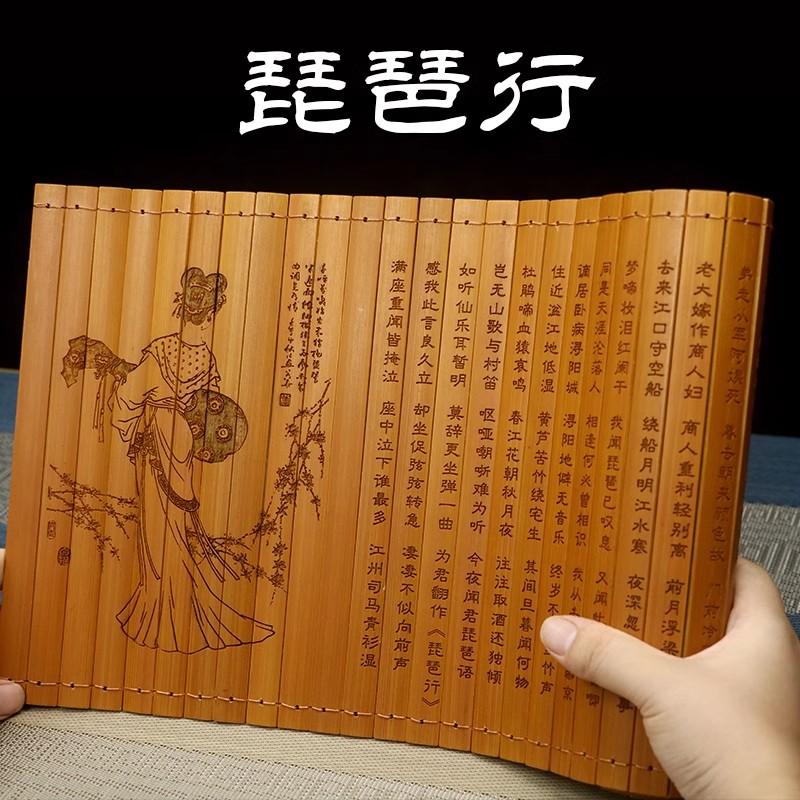 琵琶行
暮去朝来颜色故 门前冷
老大嫁作商人妇 商人重利轻别离 前月浮梁
去来江口守空船 绕船月明江水寒 夜深忽 事
梦啼妆泪红阑干 我闻琵琶已叹息 又闻此 唧
同是天涯沦落人 相逢何必曾相识 我从去 京
谪居卧病浔阳城 浔阳地僻无音乐 终岁不 竹声
住近湓江地低湿 黄芦苦竹绕宅生 其间旦暮闻何物
杜鹃啼血猿哀鸣 春江花朝秋月夜 往往取酒还独倾
岂无山歌与村笛 呕哑嘲哳难为听 今夜闻君琵琶语
如听仙乐耳暂明 莫辞更坐弹一曲 为君翻作《琵琶行》
感我此言良久立 却坐促弦弦转急 凄凄不似向前声
满座重闻皆掩泣 座中泣下谁最多 江州司马青衫湿